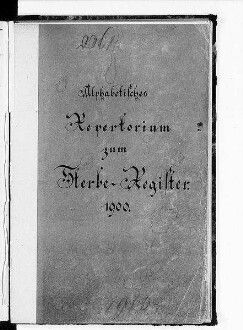 Alphabetisches
Repertorium
zum
Sterbe-Register
1900.